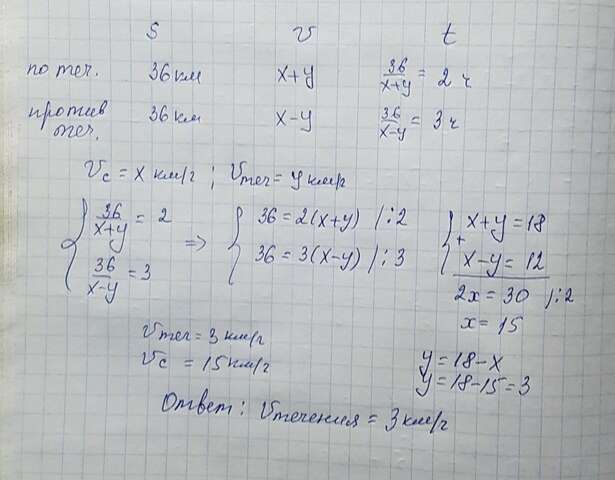 S v t
по теч. 36 км x+y 36/(x+y) = 2 ч
против теч. 36 км x-y 36/(x-y) = 3 ч
Vc = x км/г ; Vтеч = y км/г
{ 36/(x+y) = 2 ⇒ { 36 = 2(x+y) /:2 { x+y = 18
36/(x-y) = 3 36 = 3(x-y) /:3 + x-y = 12
2x = 30 /:2
x = 15
Vтеч = 3 км/г
Vc = 15 км/г
y = 18-x
y = 18-15 = 3
Ответ: Vтечения = 3 км/г